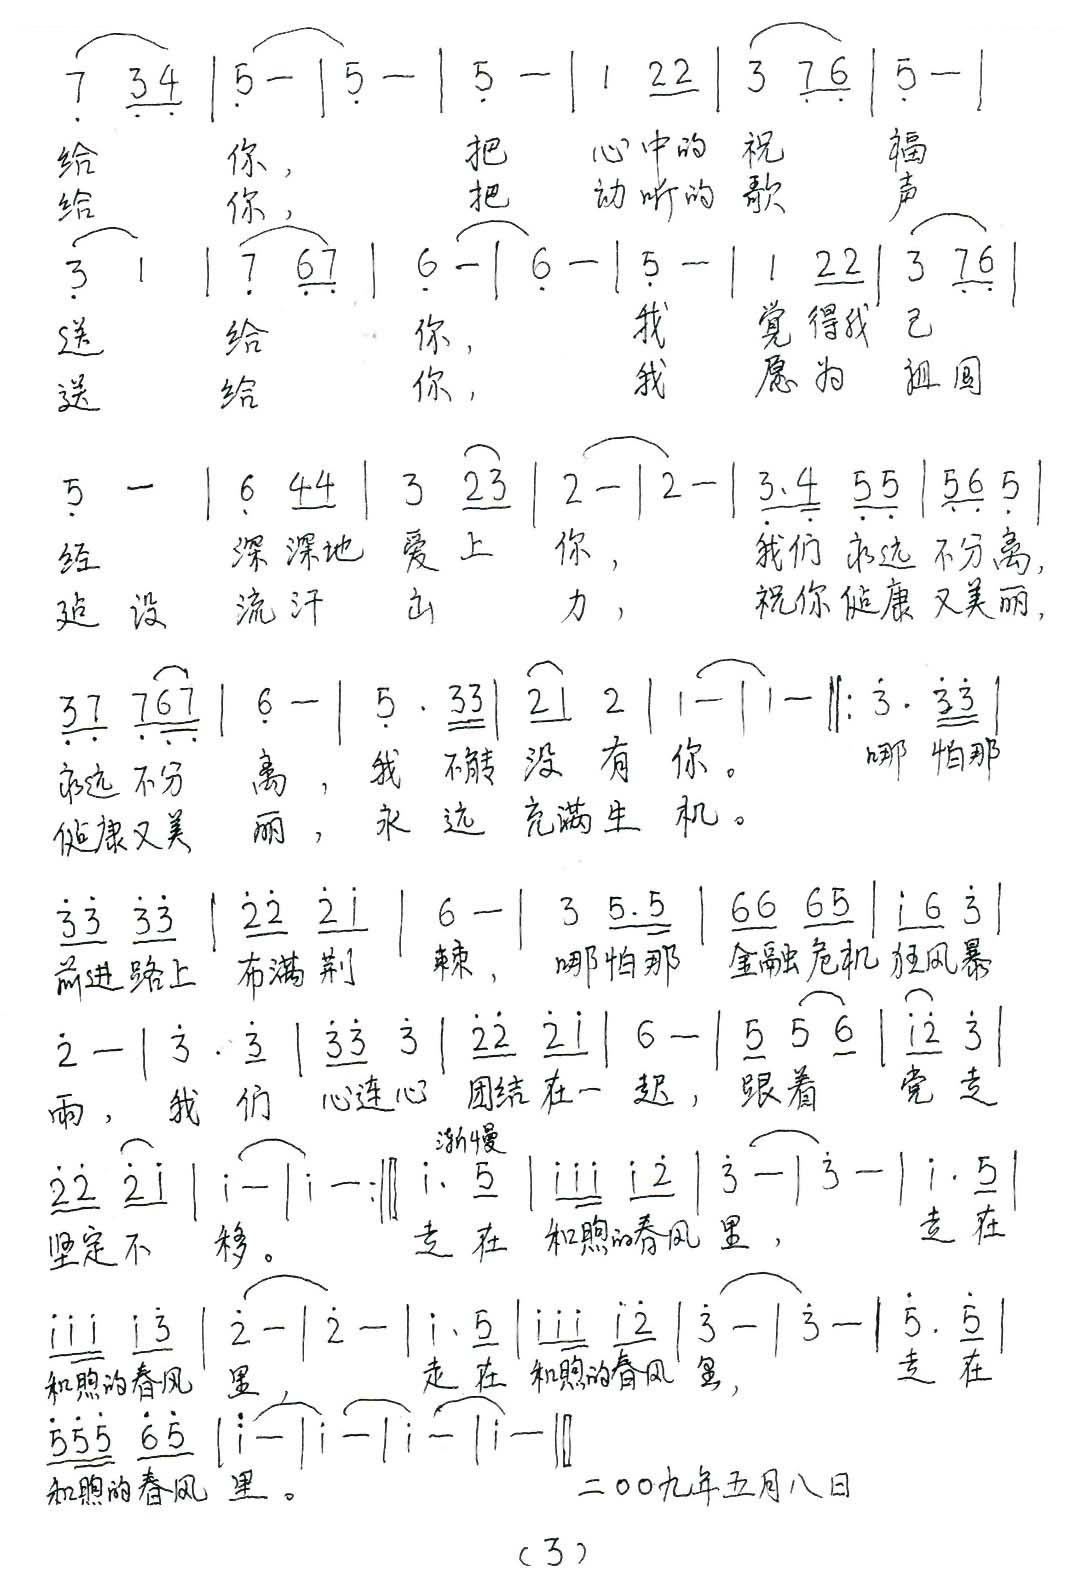 7 34 | 5 — | 5 — | 5 — | 1 22 | 3 76 | 5 — |
给 你， 把 心中的 祝 福
给 你， 把 动听的 歌 声
3 1 | 7 67 | 6 — | 6 — | 5 — | 1 22 | 3 76 |
送 给 你， 我 觉得我 已
送 给 你， 我 愿为 祖国
5 — | 6 44 | 3 23 | 2 — | 2 — | 3.4 55 | 56 5 |
经 深深地 爱上 你， 我们永远 不分离，
建设 流汗 出 力， 祝你健康 又美丽，
37 767 | 6 — | 5 . 33 | 21 2 | 1 — | 1 — ‖: 3 . 33 |
永远不分 离，我 不能 没有你。 哪怕那
健康又美 丽，永远 充满生机。
33 33 | 22 21 | 6 — | 3 5.5 | 66 65 | i6 3 |
前进路上 布满荆 棘，哪怕那 金融危机 狂风暴
2 — | 3 . 3 | 33 3 | 22 21 | 6 — | 5 5 6 | i2 3 |
雨，我们 心连心 团结在一起，跟着 党走
渐慢
22 21 | i — | i — :‖ i. 5 | iii i2 | 3 — | 3 — | i. 5 |
坚定不 移。 走在 和煦的春风里， 走在
iii i3 | 2 — | 2 — | i. 5 | iii i2 | 3 — | 3 — | 5. 5 |
和煦的春风 里， 走在 和煦的春风 里， 走在
555 65 | i — | i — | i — | i — ‖
和煦的春风 里。 二〇〇九年五月八日
（3）